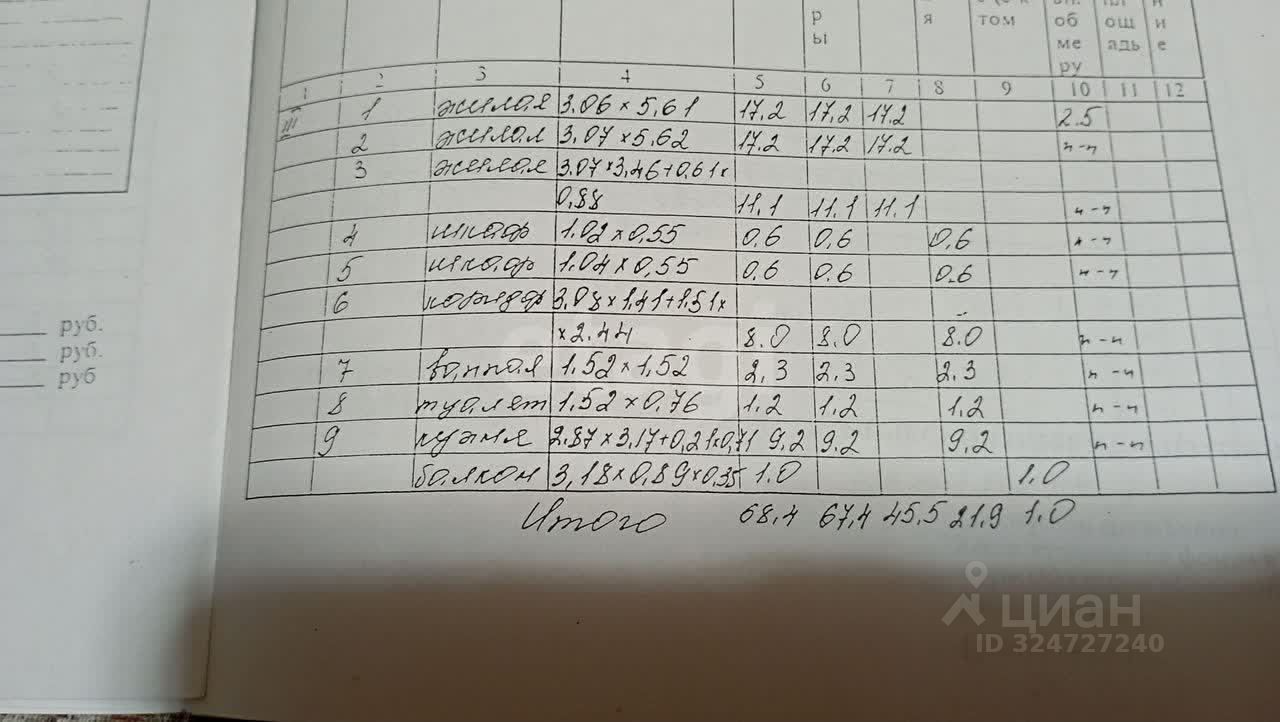 р
ы
я
том
об
ме
ру
ощ
адь
и
е
1 2 3 4 5 6 7 8 9 10 11 12
III 1 жилая 3.06 × 5,61 17,2 17,2 17.2 2.5
2 жилая 3,07 × 5,62 17.2 17.2 17.2 "-"
3 жилая 3.07 × 3,46 + 0,61 ×
0,88 11,1 11.1 11.1 "-"
4 шкаф 1.02 × 0,55 0,6 0,6 0,6 "-"
5 шкаф 1.04 × 0,55 0,6 0.6 0.6 "-"
6 коридор 3.08 × 1,41 + 1,51 ×
× 2.44 8.0 8.0 8.0 "-"
7 ванная 1,52 × 1,52 2,3 2.3 2.3 "-"
8 туалет 1,52 × 0,76 1.2 1.2 1.2 "-"
9 кухня 2.87 × 3,17 + 0,21 × 0,71 9,2 9.2 9,2 "-"
балкон 3,18 × 0,89 × 0,35 1.0 1.0
Итого 68,4 67,4 45,5 21.9 1,0
руб.
руб.
руб
циан
ID 324727240